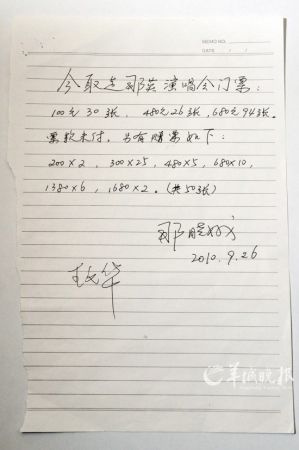 MEMO NO.
DATE / /
今取走那英演唱会门票:
100元30张,480元26张,680元94张。
票款未付,另有赠票如下:
200×2,300×25,480×5,680×10,
1380×6,1680×2。(共50张)
那
2010.9.26
华
羊城晚报